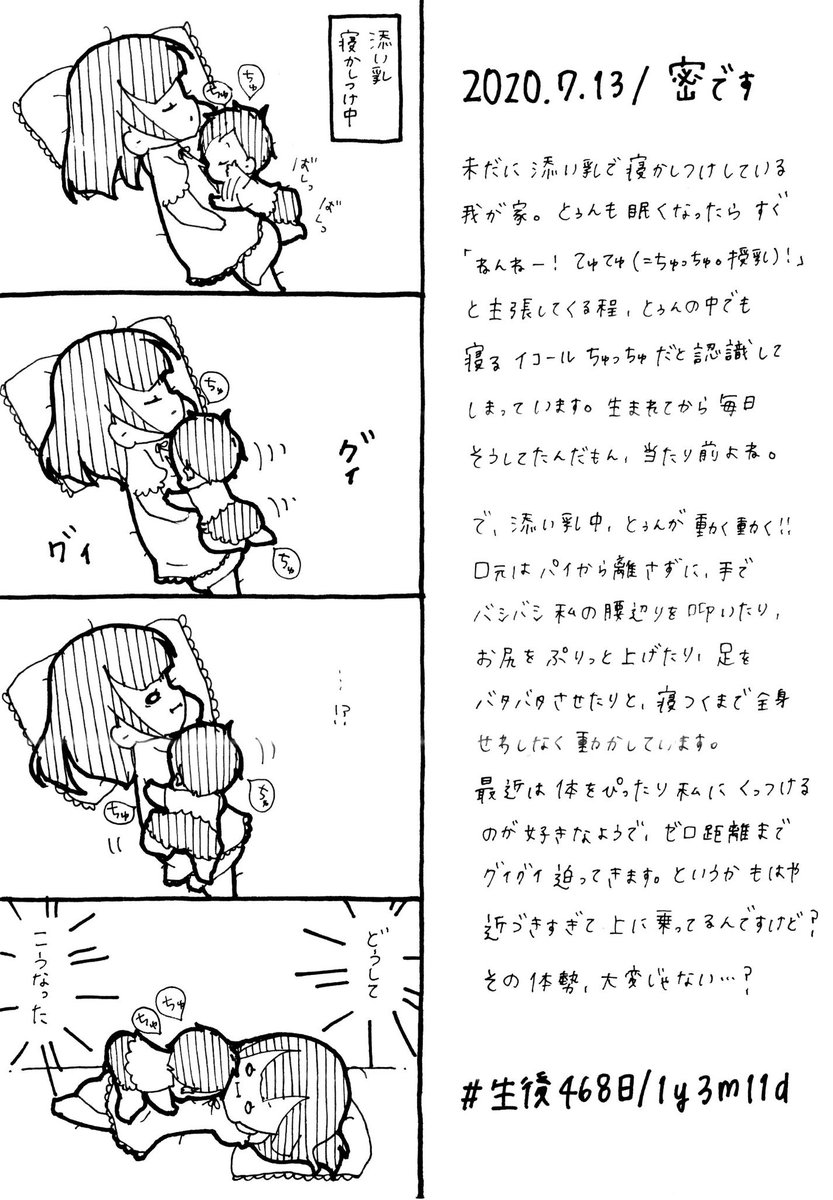 添い乳
寝かしつけ中
ちゅ
ちゅ
ばしっ
ばしっ
ちゅ
グイ
グイ
ちゅ
…!?
ちゅ
ちゅ
どうして
こうなった
ちゅ
ちゅ
2020.7.13/密です
未だに添い乳で寝かしつけしている
我が家。とぅんも眠くなったらすぐ
「ねんねー!てゅてゅ(=ちゅっちゅ。授乳)!」
と主張してくる程、とぅんの中でも
寝るイコールちゅっちゅだと認識して
しまっています。生まれてから毎日
そうしてたんだもん、当たり前よね。
で、添い乳中、とぅんが動く動く!!
口元はパイから離さずに、手で
バシバシ私の腰辺りを叩いたり、
お尻をぷりっと上げたり、足を
バタバタさせたりと、寝つくまで全身
せわしなく動かしています。
最近は体をぴったり私にくっつける
のが好きなようで、ゼロ距離まで
グイグイ迫ってきます。というかもはや
近づきすぎて上に乗ってるんですけど?
その体勢、大変じゃない…?
#生後468日/1y3m11d